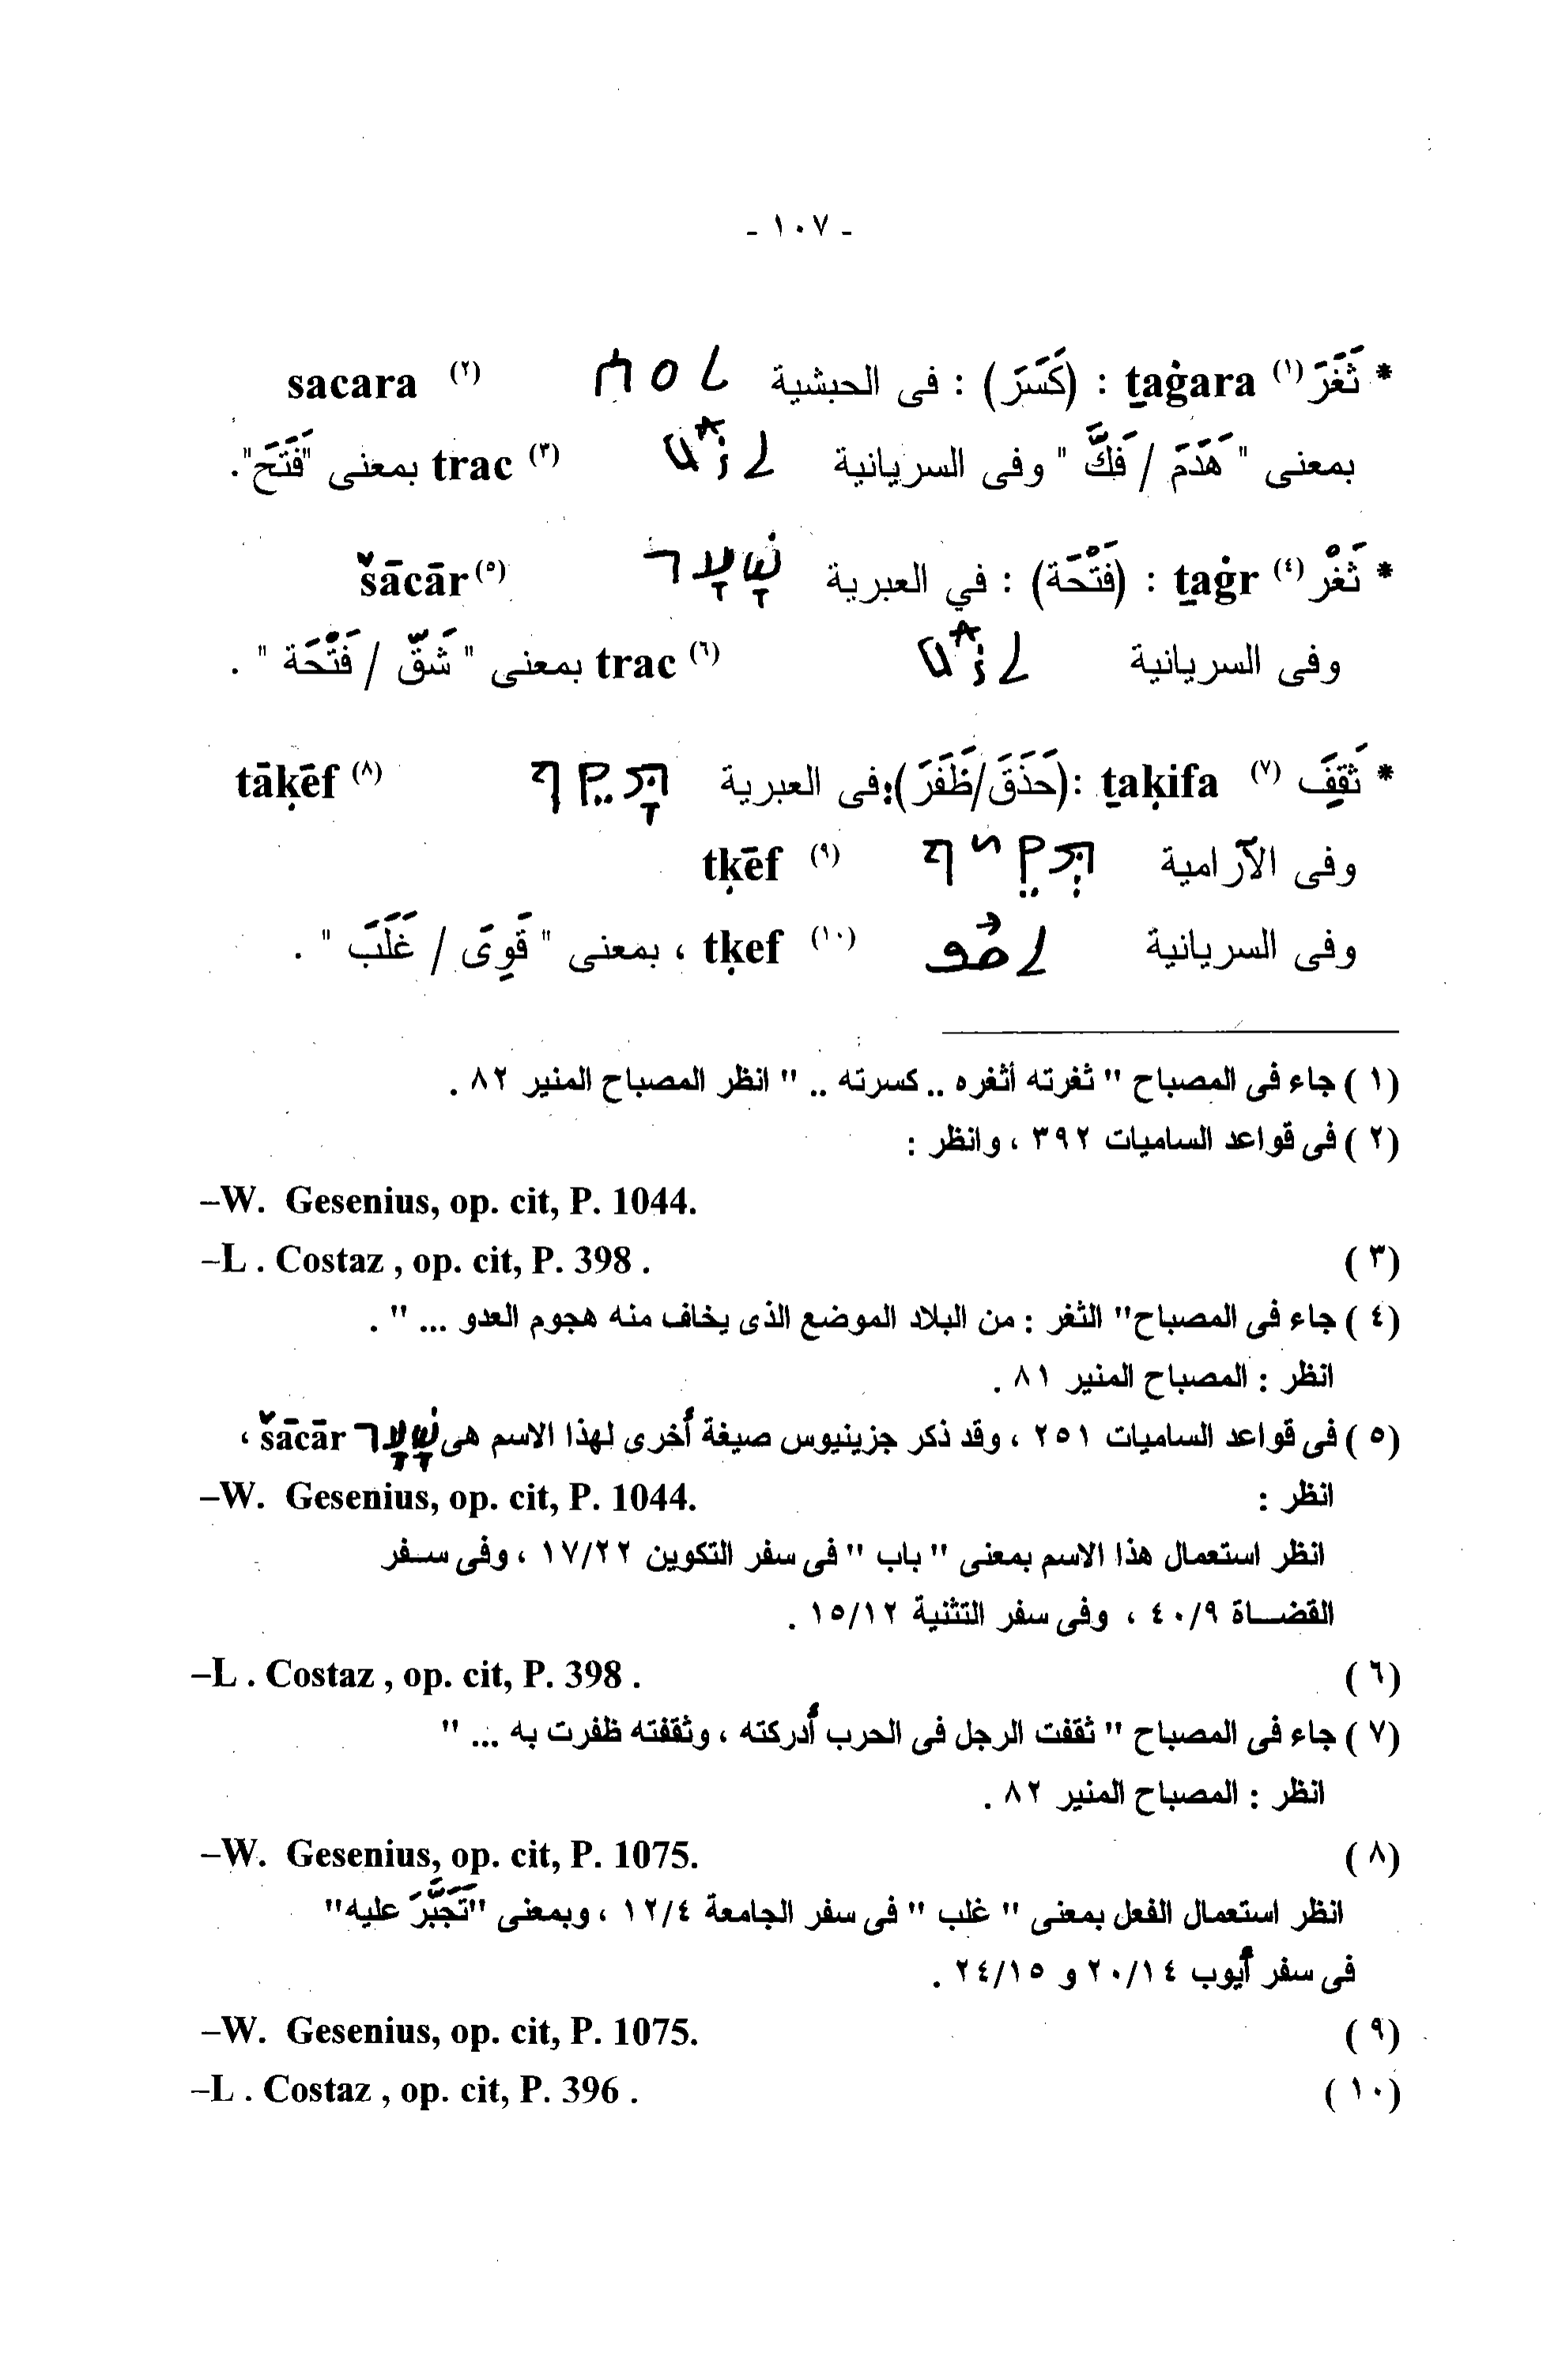 - ١٠٧ -
* ثَغَرَ (١) ṯaġara : (كَسَرَ) : فى الحبشية ሰዐረ sacara (٢)
بمعنى " هَدَمَ / فَكَّ " وفى السريانية trac (٣) بمعنى "فَتَحَ".
* ثَغْر (٤) ṯaġr : (فَتْحَة) : في العبرية שָׁעַר šācār (٥)
وفى السريانية trac (٦) بمعنى " شَقّ / فَتْحَة " .
* ثَقِفَ (٧) ṯaḳifa :(حَذَقَ/ظَفَرَ):فى العبرية תָּקֵף tāḳēf (٨)
وفى الآرامية תְּקֵיף tḳēf (٩)
وفى السريانية ܬܩܦ tḳef (١٠) ، بمعنى " قَوِىَ / غَلَبَ " .
(١) جاء فى المصباح " ثغرته أثغره .. كسرته .. " انظر المصباح المنير ٨٢ .
(٢) فى قواعد الساميات ٣٩٢ ، وانظر :
–W. Gesenius, op. cit, P. 1044.
(٣) –L . Costaz , op. cit, P. 398 .
(٤) جاء فى المصباح" الثغر : من البلاد الموضع الذى يخاف منه هجوم العدو ... " .
انظر : المصباح المنير ٨١ .
(٥) فى قواعد الساميات ٢٥١ ، وقد ذكر جزينيوس صيغة أخرى لهذا الاسم هى שָׁעָר šācār ،
انظر : –W. Gesenius, op. cit, P. 1044.
انظر استعمال هذا الاسم بمعنى " باب " فى سفر التكوين ١٧/٢٢ ، وفى سفر
القضاة ٤٠/٩ ، وفى سفر التثنية ١٥/١٢ .
(٦) –L . Costaz , op. cit, P. 398 .
(٧) جاء فى المصباح " ثقفت الرجل فى الحرب أدركته ، وثقفته ظفرت به ... "
انظر : المصباح المنير ٨٢ .
(٨) –W. Gesenius, op. cit, P. 1075.
انظر استعمال الفعل بمعنى " غلب " فى سفر الجامعة ١٢/٤ ، وبمعنى "تَجَبَّرَ عليه"
فى سفر أيوب ٢٠/١٤ و ٢٤/١٥ .
(٩) –W. Gesenius, op. cit, P. 1075.
(١٠) –L . Costaz , op. cit, P. 396 .